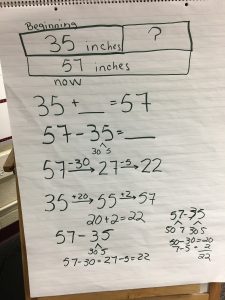 Beginning
35 inches ?
57 inches
now
35 + __ = 57
57 - 35 = __
30 5
57 -30→ 27 -5→ 22
35 +20→ 55 +2→ 57
20 + 2 = 22
57 - 35
30 5
57 - 30 = 27 - 5 = 22
57 - 35
50 7 30 5
50 - 30 = 20
7 - 5 = 2
22